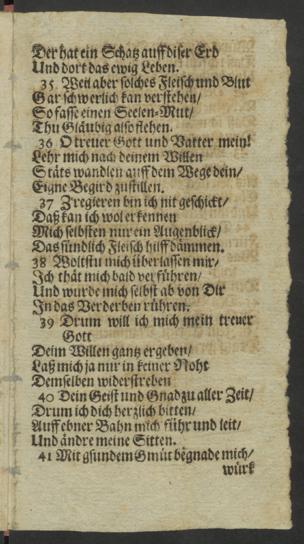 Der hat ein Schatz auff diser Erd
Und dort das ewig Leben.
35. Weil aber solches Fleisch und Blut
Gar schwerlich kan verstehen/
So fasse einen Seelen-Mut/
Thu Gläubig also flehen.
36 O treuer Gott und Vatter mein!
Lehr mich nach deinem Willen
Stäts wandlen auff dem Wege dein/
Eigne Begird zustillen.
37 Zregieren bin ich nit geschickt/
Daß kan ich wol erkennen
Mich selbsten nur ein Augenblick/
Das sündlich Fleisch hilff dämmen.
38 Woltstu mich überlassen mir/
Ich thät mich bald verführen/
Und wurde mich selbst ab von Dir
In das Verderben rühren.
39 Drum will ich mich mein treuer
Gott
Deim Willen gantz ergeben/
Laß mich ja nur in keiner Noht
Demselben widerstreben
40 Dein Geist und Gnad zu aller Zeit/
Drum ich dich herzlich bitten/
Auff ebner Bahn mich führ und leit/
Und ändre meine Sitten.
41 Mit gsundem Gmüt begnade mich/
würk